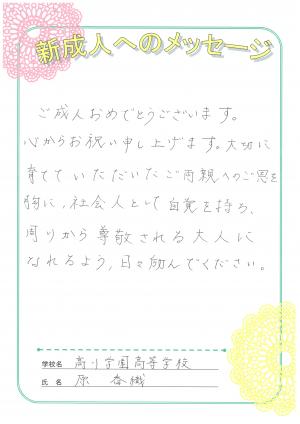 新成人へのメッセージ
ご成人おめでとうございます。
心からお祝い申し上げます。大切に
育てていただいたご両親へのご恩を
胸に、社会人として自覚を持ち、
周りから尊敬される大人に
なれるよう、日々励んでください。
学校名 高川学園高等学校
氏名 原 春織